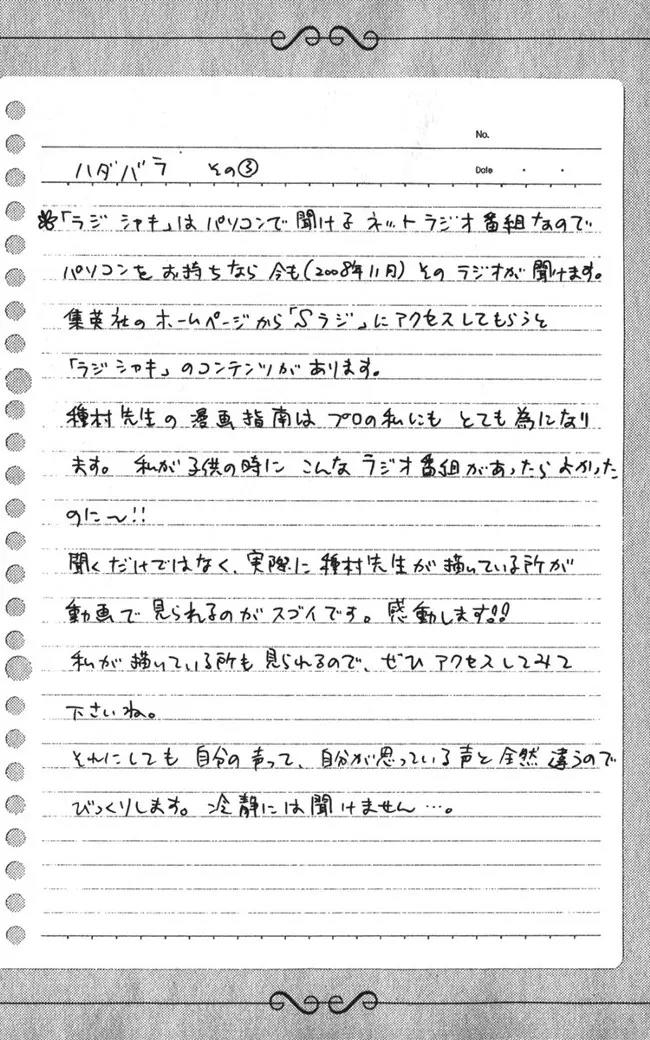 No.
ハダバラ その③
Date ・ ・
✽「ラジシャキ」は パソコンで聞ける ネットラジオ番組なので
パソコンを お持ちなら 今も(2008年11月) その ラジオが 聞けます。
集英社の ホームページから「Sラジ」に アクセスしてもらうと
「ラジシャキ」のコンテンツが あります。
種村先生の 漫画指南は プロの私にも とても為になり
ます。 私が子供の時に こんな ラジオ番組があったら よかった
のに〜!!
聞くだけではなく、実際に 種村先生が 描いている所が
動画で 見られるのが スゴイです。感動します!!
私が 描いている所も 見られるので、ぜひ アクセスしてみて
下さいね。
それにしても 自分の声って、自分が思っている声と 全然 違うので
びっくりします。冷静には聞けません…。